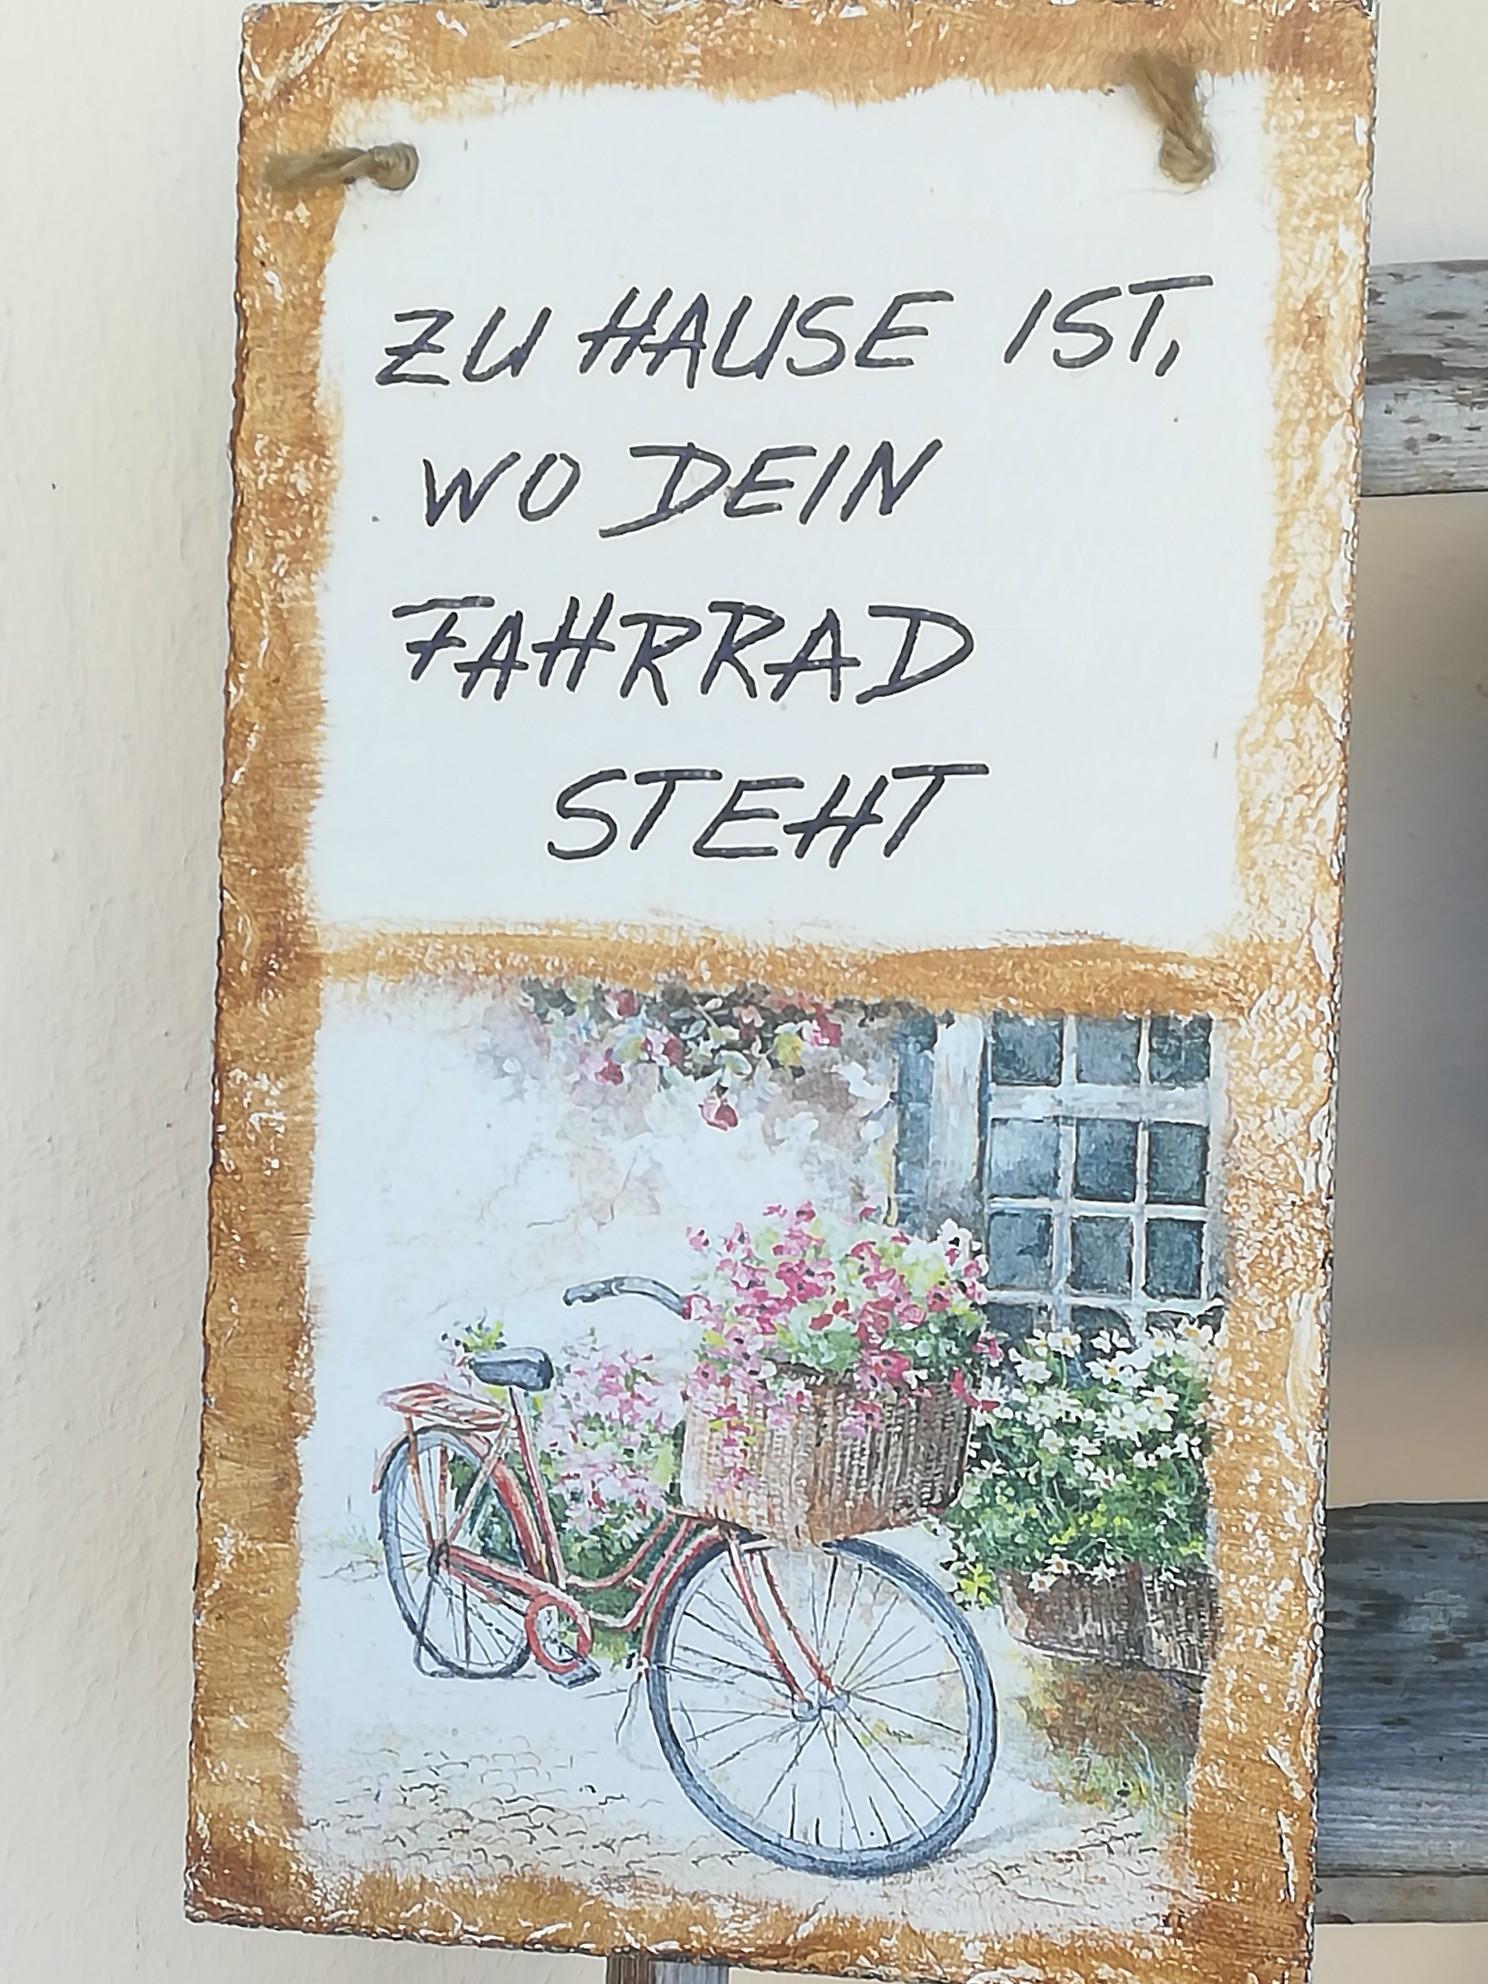 ZU HAUSE IST,
WO DEIN
FAHRRAD
STEHT